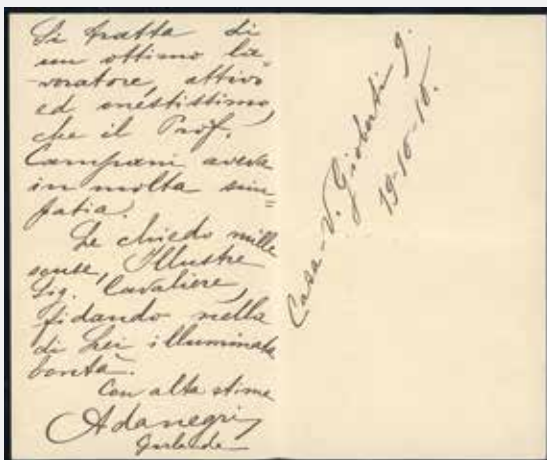 Si tratta di
un ottimo la-
voratore, attivo
ed onestissimo,
che il Prof.
Campani aveva
in molta sim=
patia.
Le chiedo mille
scuse, Illustre
Sig. Cavaliere,
fidando nella
di Lei illuminata
bontà.
Con alta stima
Ada Negri
Garlanda
Casa - V. Gioberti 9.
19-10-10.